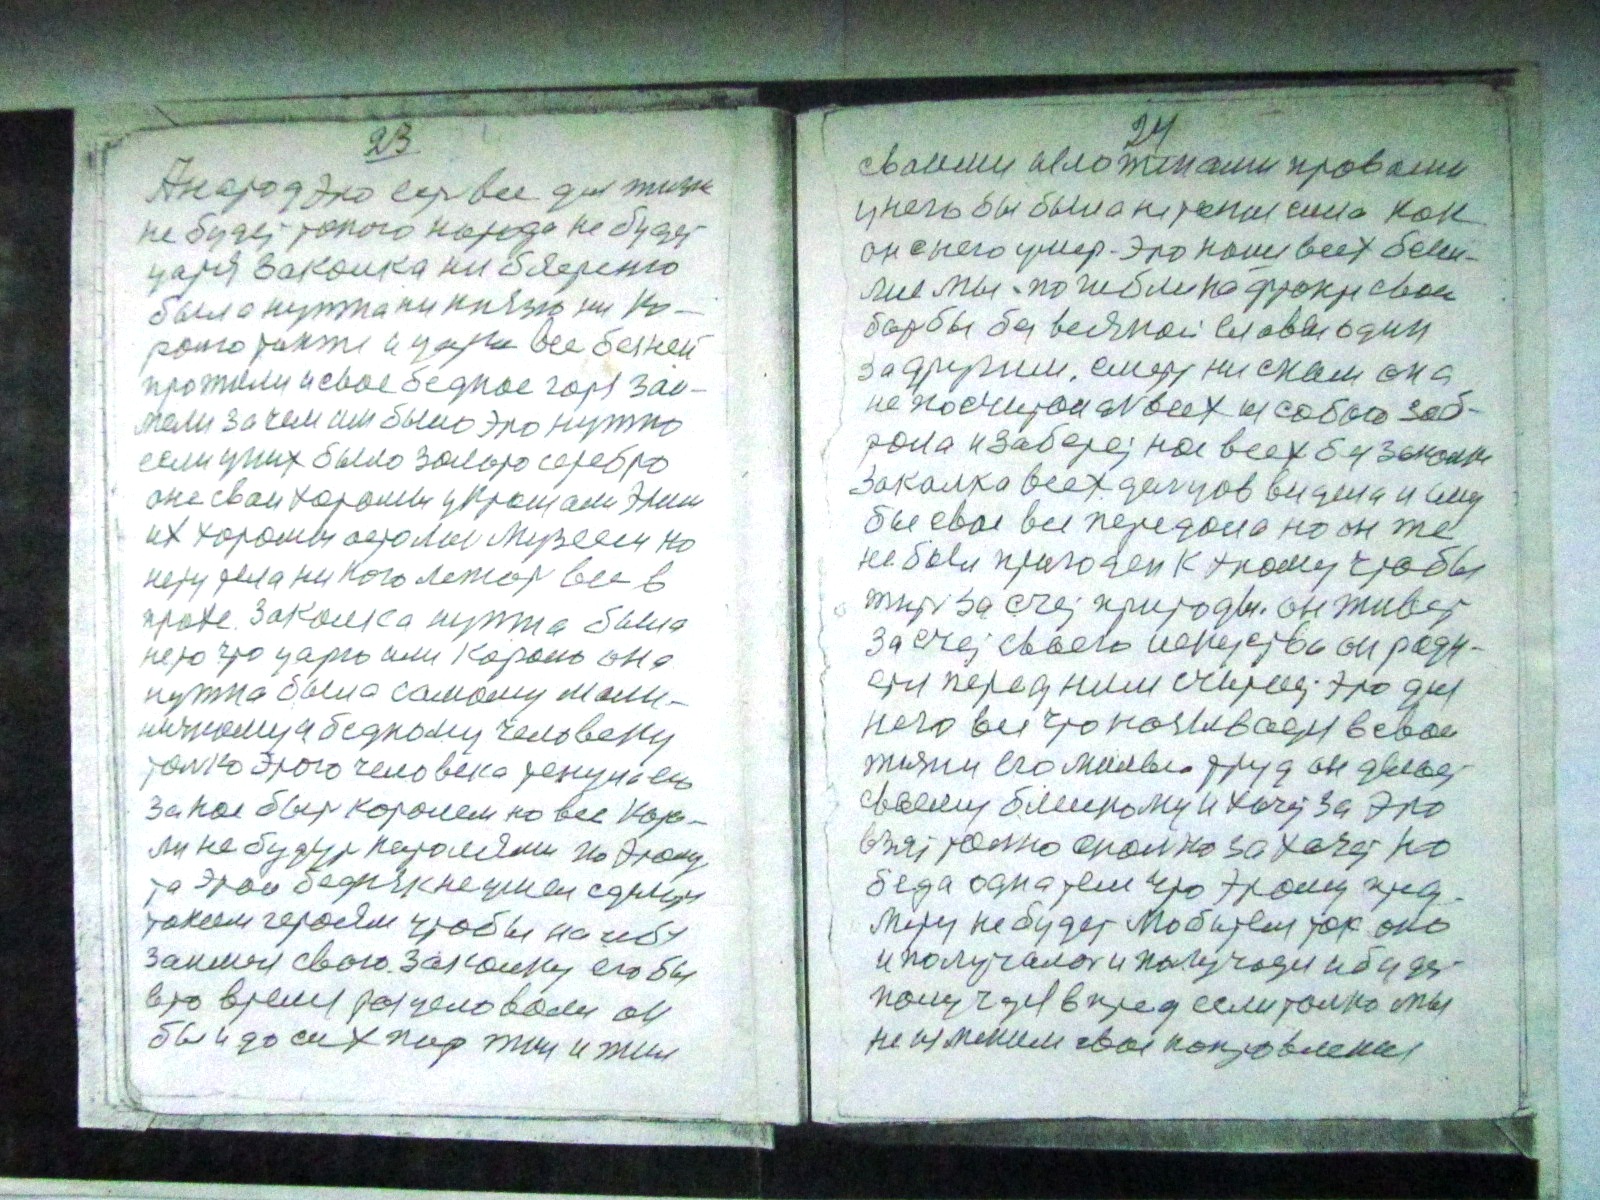 23
А народ это есть все для жизни
не будет такого народа не будет
царя. Закалка ни бъяреню
была нужна ни князю ни ко-
ролю также и царю все без ней
прожили и свое бедное горя зай-
мели зачем им было это нужно
если у них было золото серебро
оне свои хоромы украшали этим
их хоромы остались музеем но
нету тела никого лежат все в
прахе. Закалка нужна была
не то что царю или королю она
нужна была самому мали-
ничкому и бедному человеку
только этого человека тенуло
за ное быть королем но все коро-
ли не будут королями по этому
та этой бедняк не умел сделать
таким героям чтобы на себя
займел свою закалку его бы
в то время расцеловали он
бы и до сих пор жил и жил
24
своими иеложенами провами
у него бы была не такая сила как
он с него умер. Это наши всех боли-
лие мы погибли на фронте своей
борьбы без всякой славы один
за другим. смерть ни с кам она
не посчиталась всех и собою заб-
рала и заберет нас всех без закалки
Закалка всех дельцов видела и ему
бы свое все передала но он же
не был пригоден к этому чтобы
жить за счет природы. он живет
за счет своего искуства он роди-
ся перед ним считает это для
него все что называется в своей
жизни его милый труд он делает
своему близкому и хочет за это
взять только сколько захочет но
беда одна тем что этому пред-
мету не будет любытем так оно
и получалось и получаеця и будет
получаця в пред если только мы
не изменим свое направления